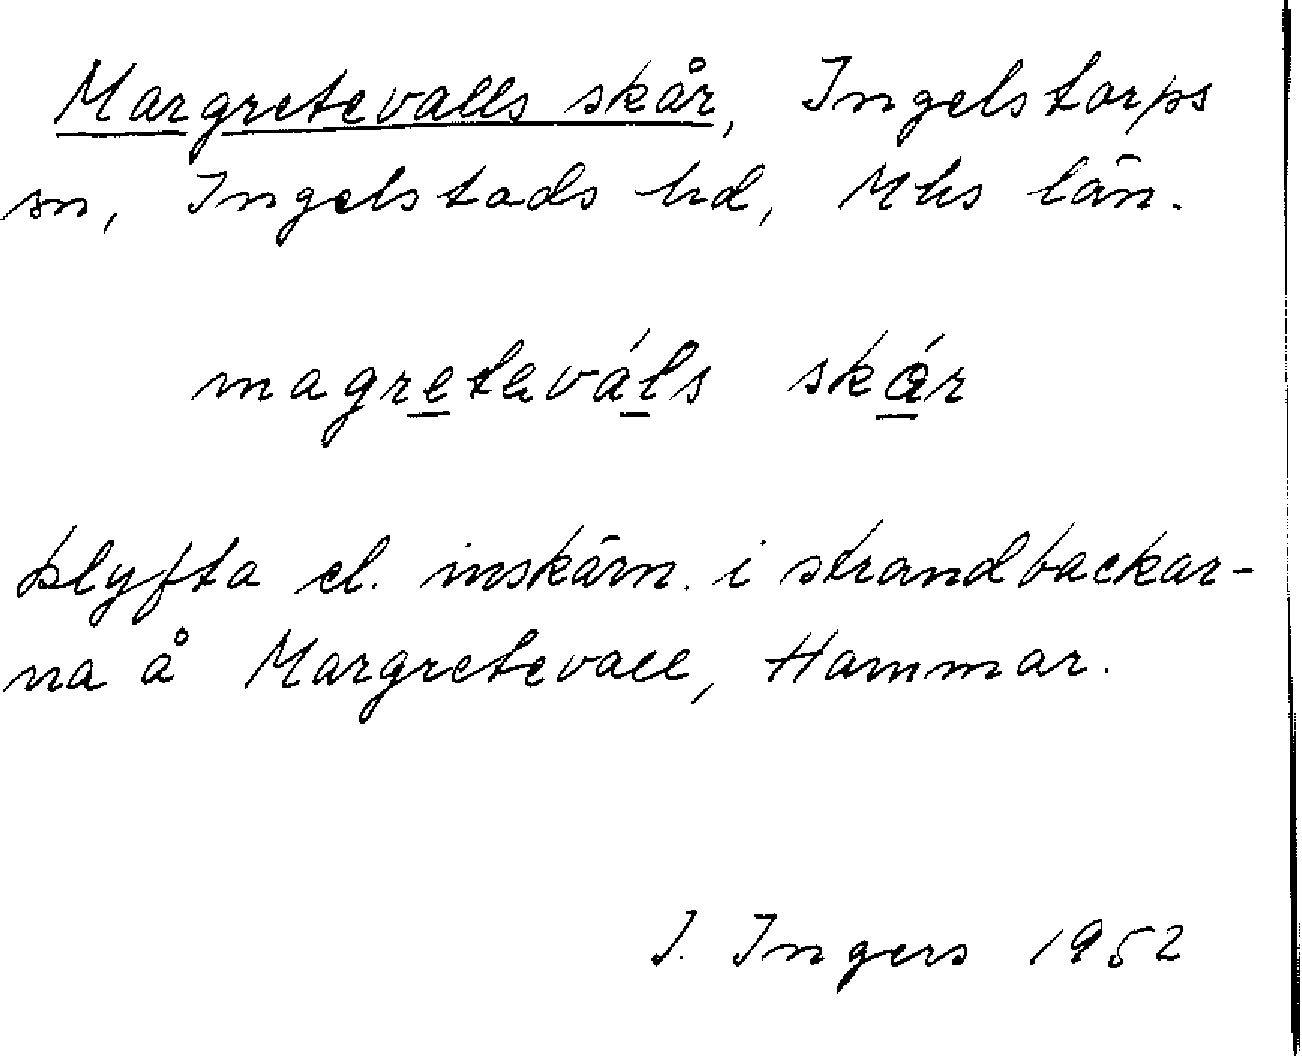 Margretevalls skår, Ingelstorps
sn, Ingelstads hd, Mhs län.
magretevá̱ls skǻr
klyfta el. inskärn. i strandbackar-
na å Margretevall, Hammar.
I. Ingers 1952